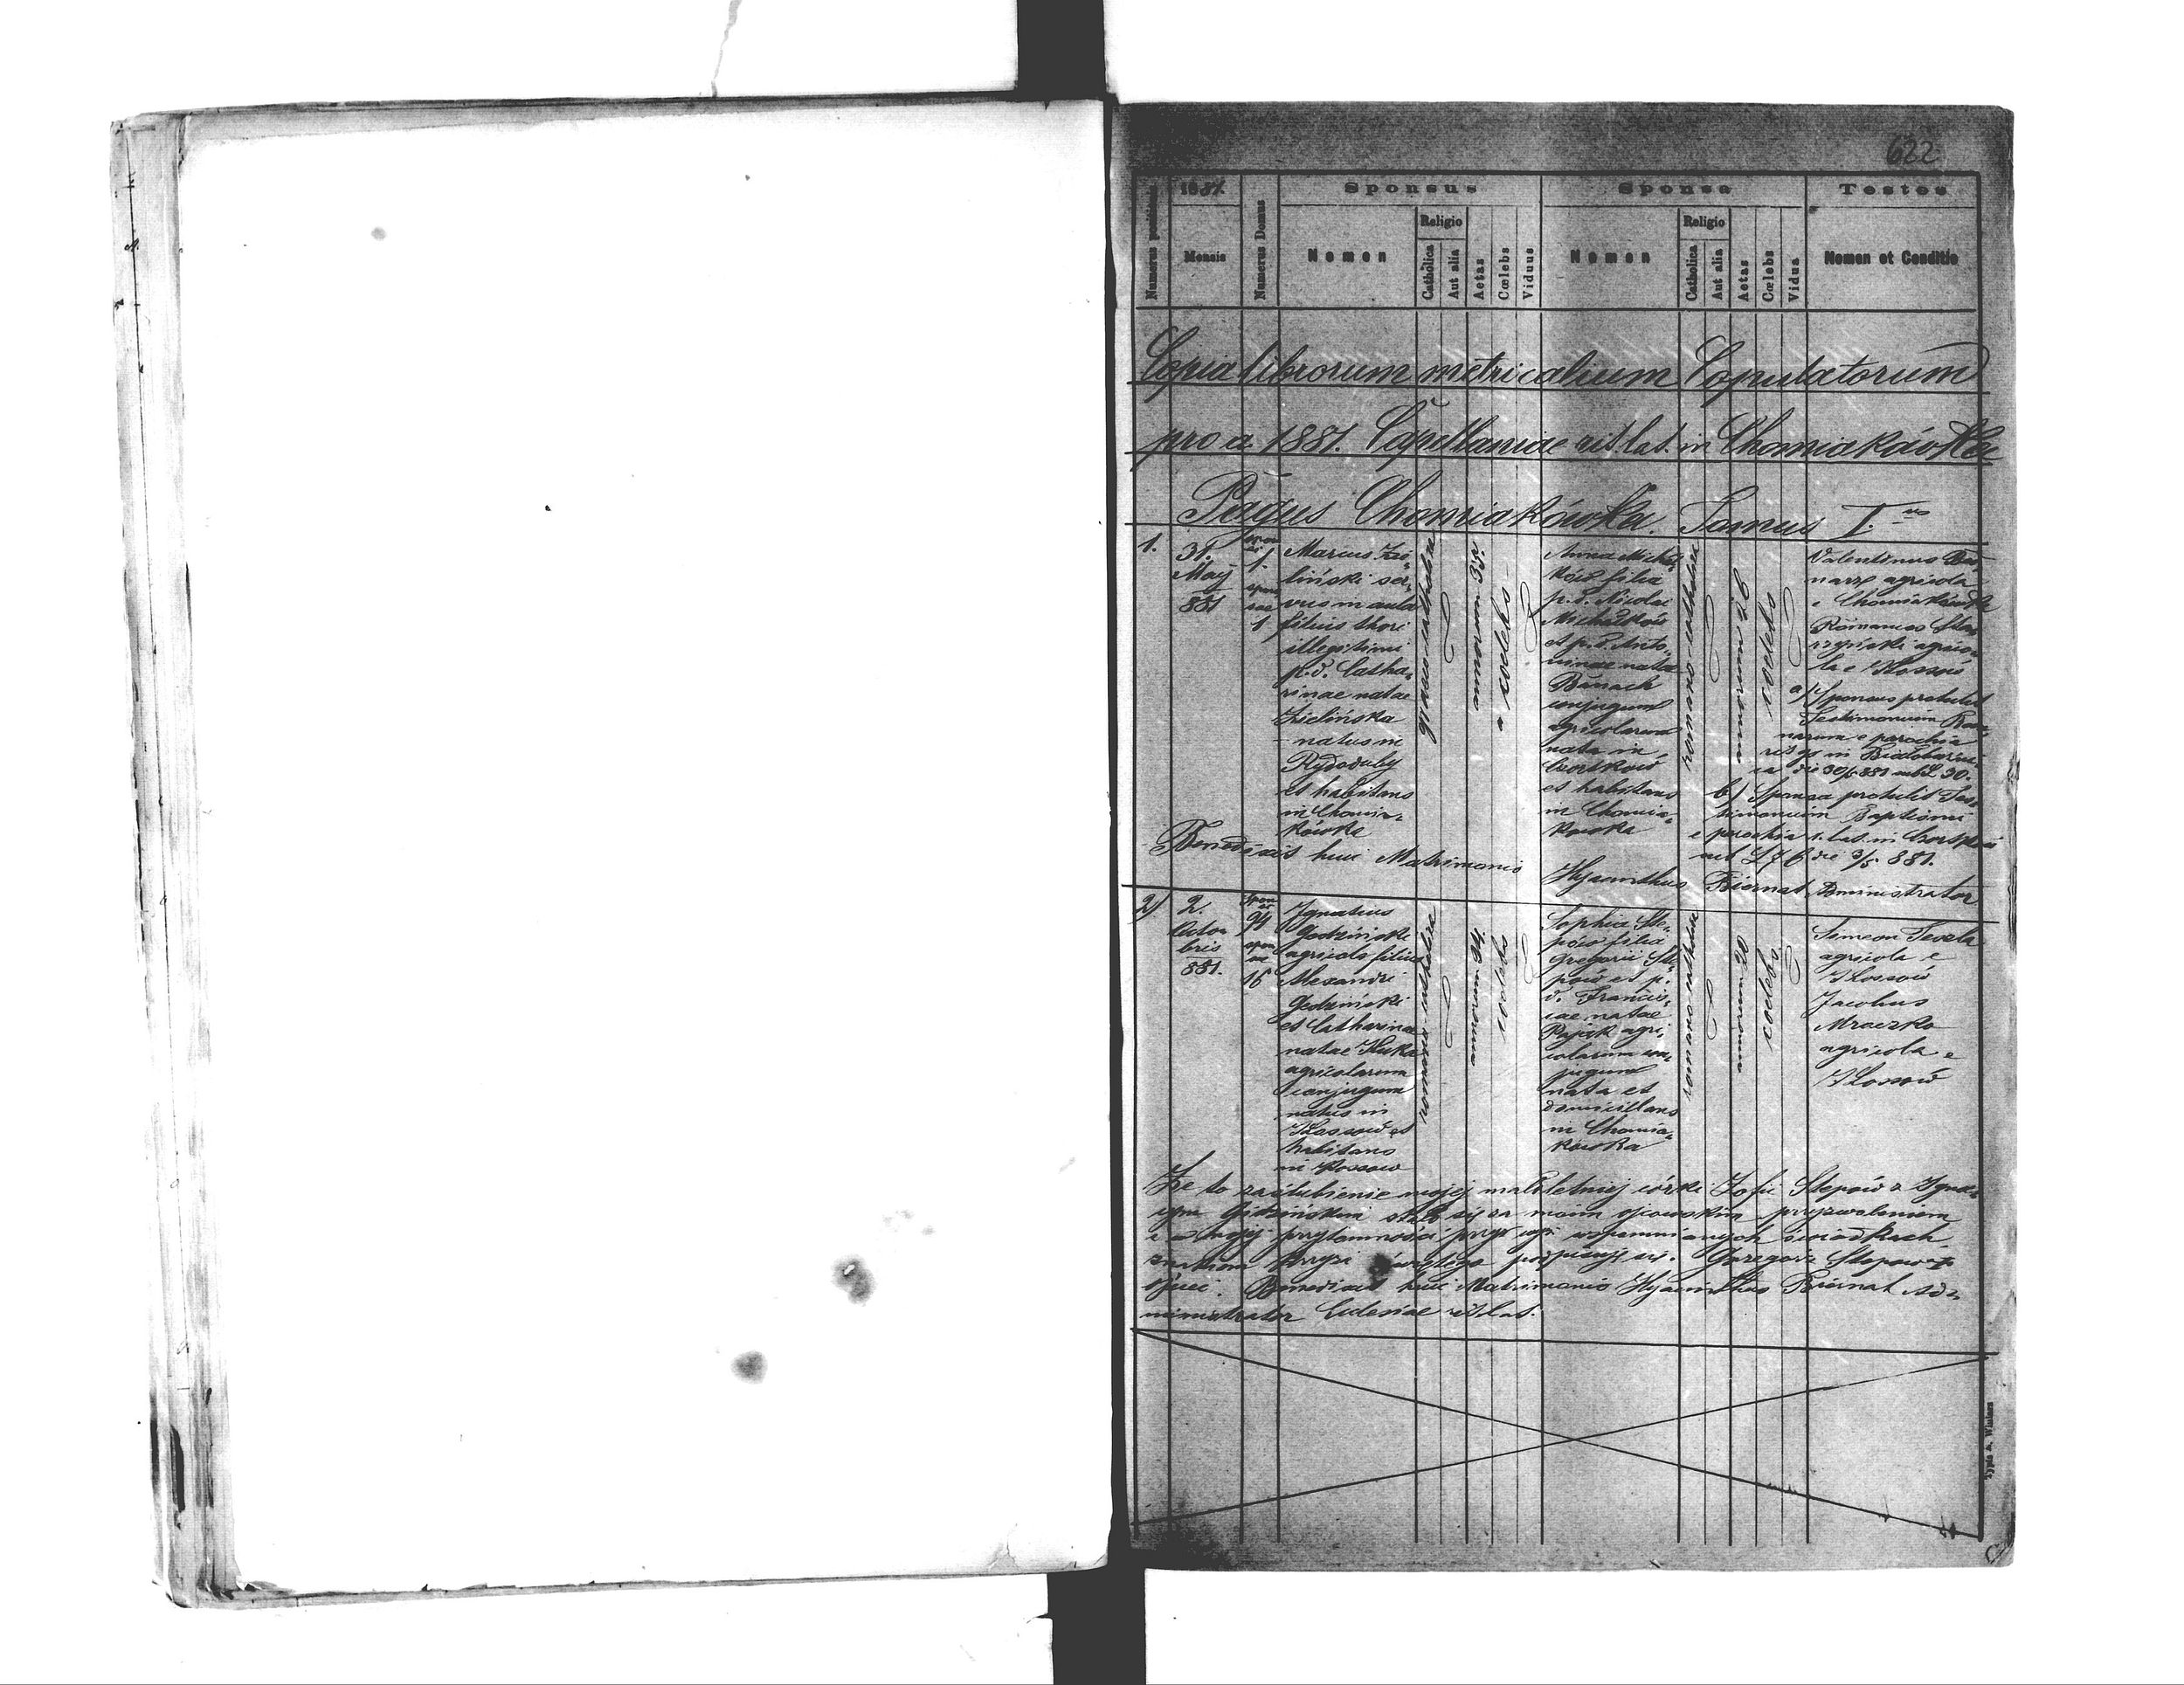 622
Numerus positionis
1881.
Mensis
Numerus Domus
Sponsus
Nomen
Religio
Catholica
Aut alia
Aetas
Cœlebs
Viduus
Sponsa
Nomen
Religio
Catholica
Aut alia
Aetas
Cœlebs
Vidua
Testes
Nomen et Conditio
Copia librorum metricalium Copulatorum
pro a 1881. Capellaniae rit. lat. in Chomiakówka
Pagus Chomiakówka. Tomus I.us
1.
31.
Maij
881
1.
1
Marcus Zie-
liński ser-
vus in aula
filius thori
illegitimi
p.d. Catha-
rinae natae
Zielińska
natus in
Rydoduby
et habitans
in Chomia-
kówka
graeco-catholica
annorum
coelebs
Anna Michał-
ków filia
p.d. Nicolai
Michałków
et p.d. Anto-
ninae natae
Banach
conjugum
agricolarum
nata in
Czortków
et habitans
in Chomia-
kówka
romano-catholica
annorum
coelebs
Valentinus
agricola
e Chomiakówka
Romanus
agrico-
la e Kossów
a) Sponsus protulit
Testimonium Ban-
norum e parochia
rit. gr. in Białobożni-
ca die 30/5 881 sub L 30.
b) Sponsa protulit Tes-
timonium Baptismi
e parochia r. lat. in Czortków
sub L 76 die 3/5 881.
Benedixit huic Matrimonio
Hyacinthus Biernat Administrator
2)
2.
Octo-
bris
881.
94
16
Ignatius
Godziński
agricola filius
Alexandri
Godziński
et Catharinae
natae
agricolarum
conjugum
natus in
Kossów et
habitans
in Kossów
romano-catholica
annorum
coelebs
Sophia Ste-
pów filia
Gregorii Ste-
pów et p.
d. Francis-
cae natae
Pająk agri-
colarum con-
jugum
nata et
domicilians
in Chomia-
kówka
romano-catholica
annorum
coelebs
Simeon
agricola e
Kossów
Jacobus
Mroczko
agricola e
Kossów
Że to zaślubienie mojej małoletniej córki Zofii Stepów z Igna-
cym Godzińskim stało się za moim ojcowskim przyzwoleniem
i w mojej przytomności przy wspomnianych świadkach
znakiem krzyża świętego podpisuję się. Grzegorz Stepów +
ojciec. Benedixit huic Matrimonio Hyacinthus Biernat Ad-
ministrator Ecclesiae rit. lat.
Typis A. Winiarz